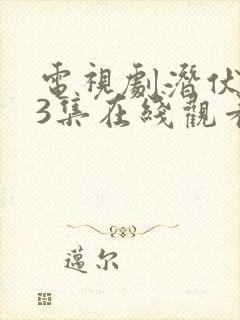 電視劇潛伏
3集在綫觀看
邁尔